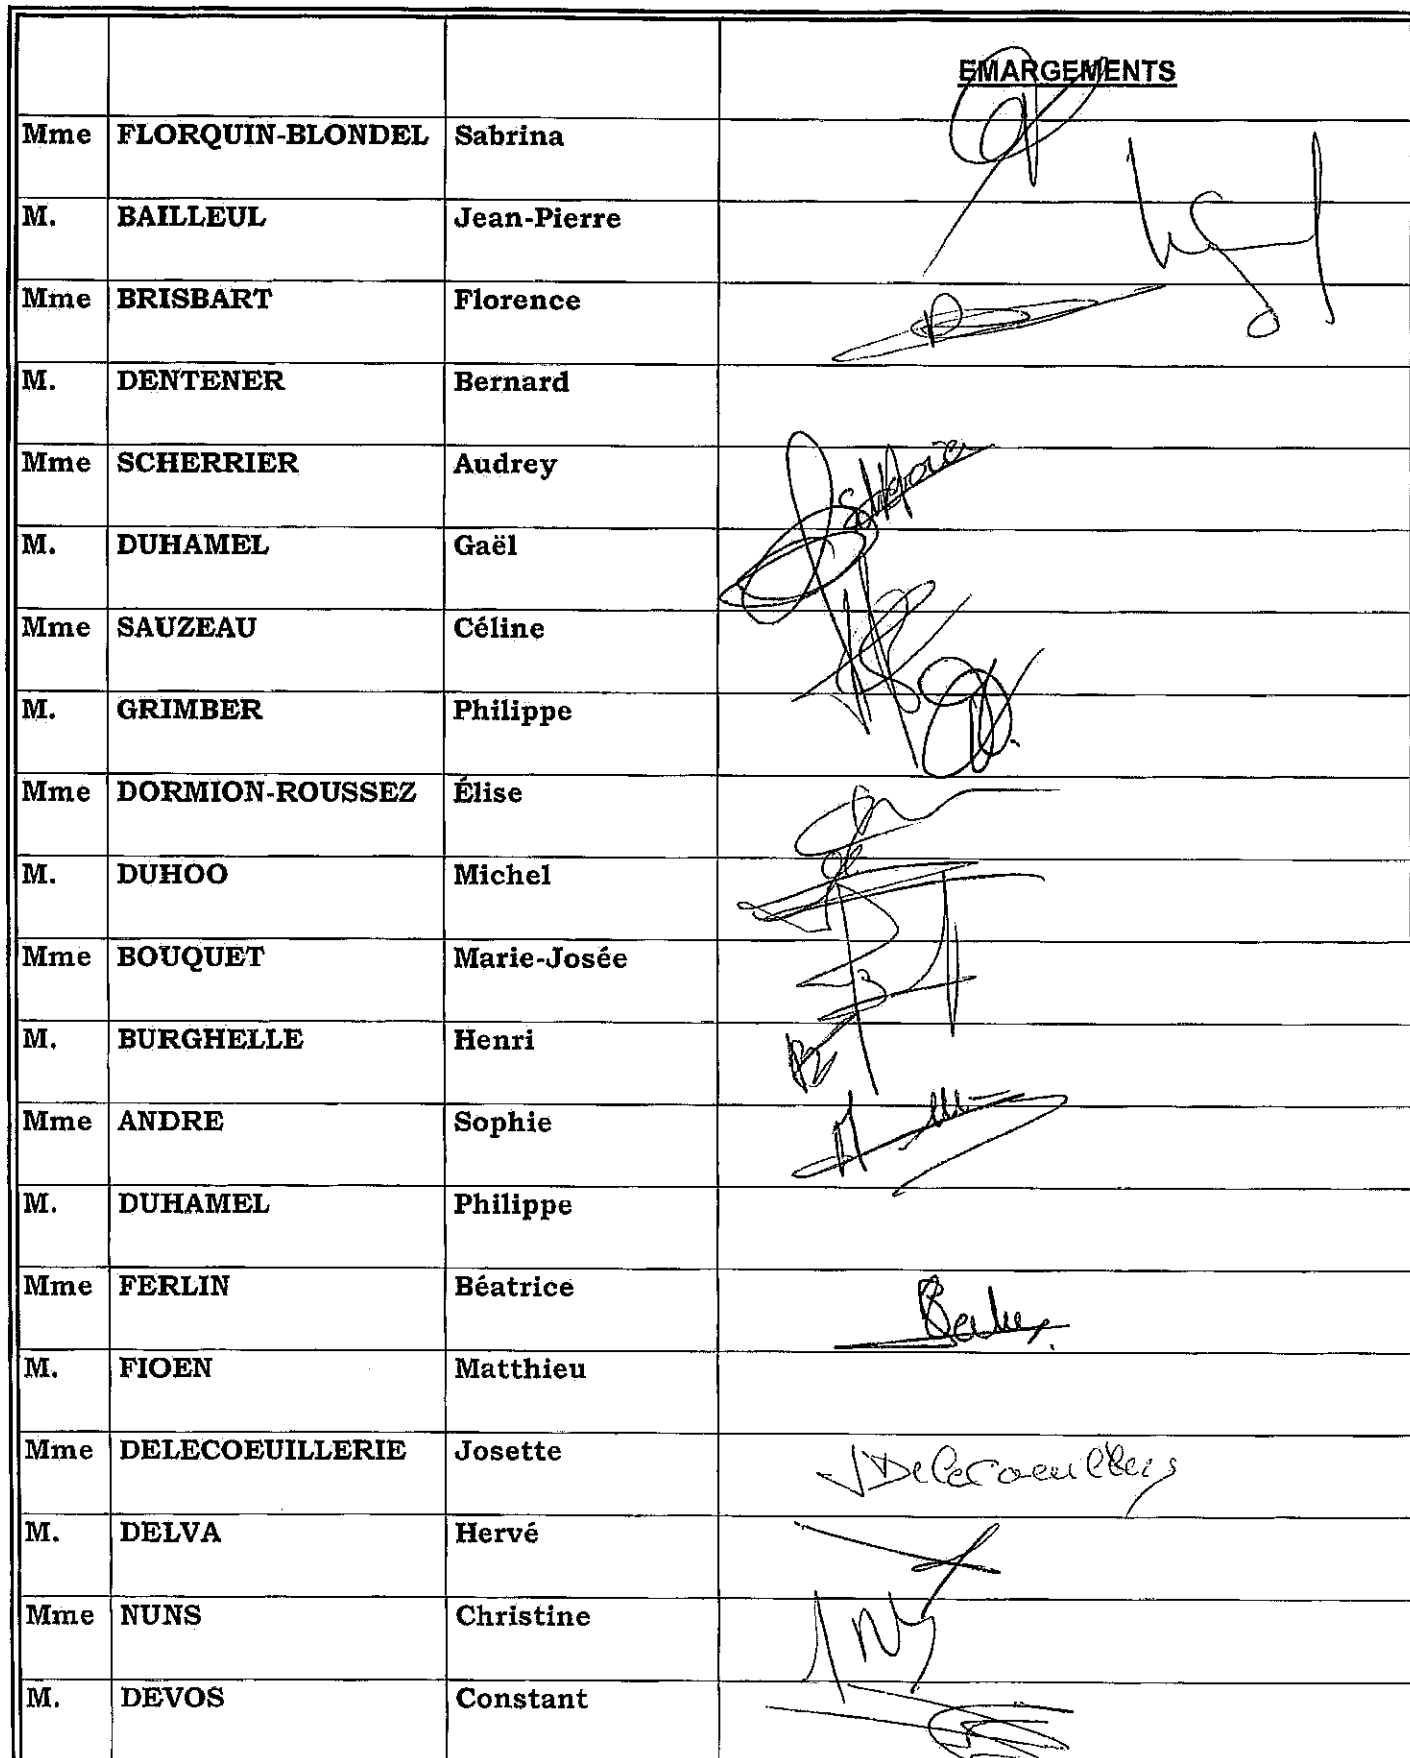 EMARGEMENTS
Mme FLORQUIN-BLONDEL Sabrina
M. BAILLEUL Jean-Pierre
Mme BRISBART Florence
M. DENTENER Bernard
Mme SCHERRIER Audrey
M. DUHAMEL Gaël
Mme SAUZEAU Céline
M. GRIMBER Philippe
Mme DORMION-ROUSSEZ Élise
M. DUHOO Michel
Mme BOUQUET Marie-Josée
M. BURGHELLE Henri
Mme ANDRE Sophie
M. DUHAMEL Philippe
Mme FERLIN Béatrice
M. FIOEN Matthieu
Mme DELECOEUILLERIE Josette
M. DELVA Hervé
Mme NUNS Christine
M. DEVOS Constant